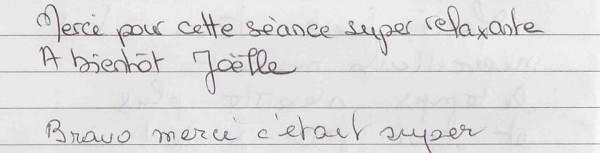 Merci pour cette séance super relaxante
A bientôt Joëlle
Bravo merci c'était super